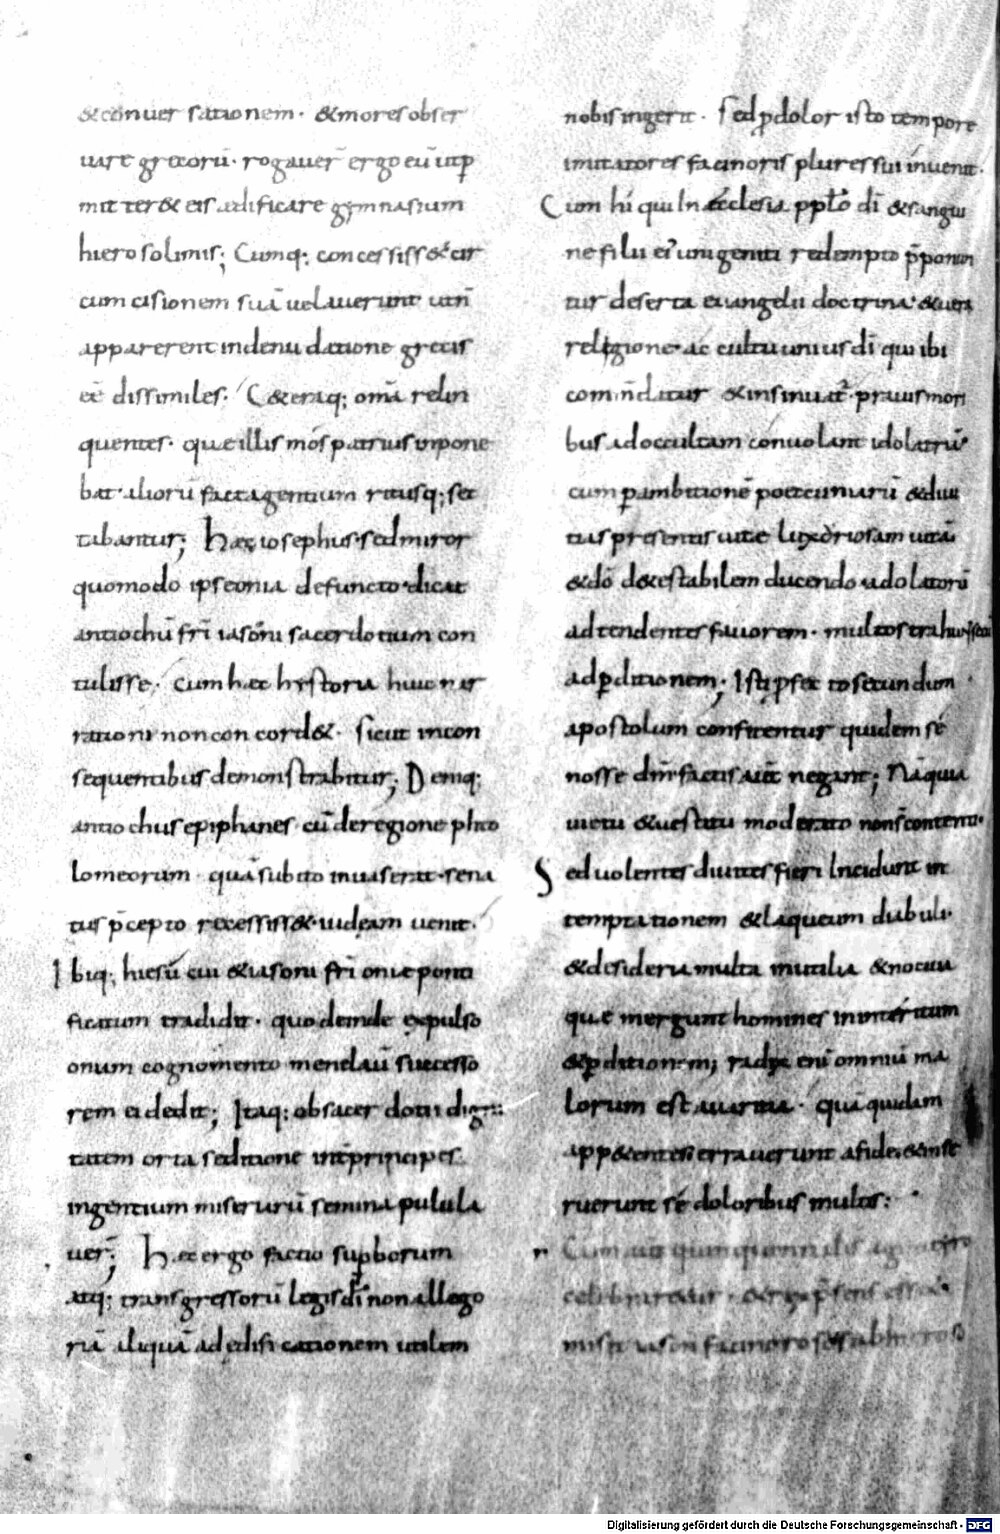 &conuersationem· &mores obser
uare grecorū· rogauer̄ ergo eū ut p̲
mitter& eis ædificare gymnasium
hierosolimis; Cumq; concessiss& cir
cumcisionem suā uelauerunt utn̄
apparerent in denudatione grecis
eē dissimiles· C&eraq; om̄a relin
quentes· que illis mos patrius inpone
bat· aliorū facta gentium ritusq; sec
tabantur; Hæc iosephus· sed miror
quomodo ipse onia defuncto· dicat
antiochū fr̄i iasoni sacerdotium con
tulisse· cum hæc hystoria huic nar
rationi non concord&· sicut in con
sequentibus demonstrabitur; Deniq;
antiochus epiphanes cū de regione phto
lomeorum quā subito inuaserat· sena
tus p̄cepto recessiss&· iudeam uenit·
Ibiq; hiesū cui & iasoni fr̄i onie ponti
ficatum tradidit· quo deinde expulso
onum cognomento menelaū successo
rem ei dedit; Itaq; ob sacerdotii digni
tatem orta seditione int̄ principes
ingentium miseriarū semina pulula
uer̄; Hæc ergo factio sup̲borum
atq; transgressorū legis dī non allego
riā aliquā ad edificationem utilem
nobis ingerit· sed p̲dolor isto tempore
imitatores facinoris plures sui inuenit·
Cum hi qui In ecclesia pp̄to dī & sangui
ne filii ei' unigeniti redempto p̄ponun
tur deserta euangelii doctrina· & uera
religione ac cultu unius dī qui ibi
com̄ndatur & insinuat̄· prauis mori
bus ad occultam conuolant idolatriā·
cum p̲ ambitionē poecuniarū & diui
tias presentis uite luxoriosam uitā
& dō d&estabilem ducendo adolatorū
adtendentes fauorem· multos trahun̄ secū
ad p̲ditionem; Isti p̲fecto secundum
apostolum confitentur quidem se
nosse dm̄ factis aut̄ negant; Nā quia
uictu & uestitu moderato non s̄ contenti·
Sed uolentes diuites fieri Incidunt in
temptationem & laqueum diabuli·
& desideria multa inutilia & nociua
que mergunt homines in interitum
& p̲ditionem; radix enī omniū ma
lorum est auaritia· quā quidam
app&entes errauerunt a fide· & inse
ruerunt se doloribus multis;
Cum aut̄ quinquennalis agon tyro
celebraretur· & rex p̄sens ess&
misit iason facinorosus ab hieroso